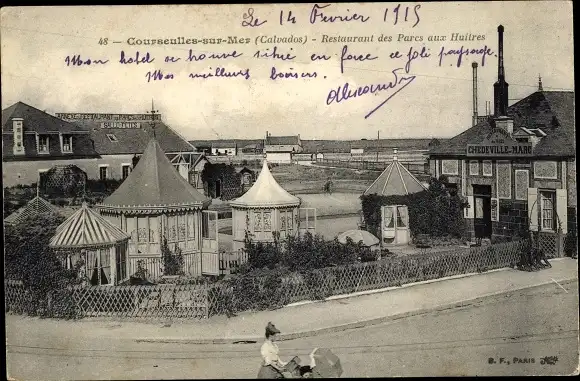 Le 14 Février 1915
48 - COURSEULLES-SUR-MER (Calvados) - Restaurant des Parcs aux Huîtres
Mon hotel se trouve situé en face ce joli paysage.
Mes meilleurs baisers.
Alexandre
SALLE FÊTES
CHEDEVILLE-MARC
B. F., PARIS